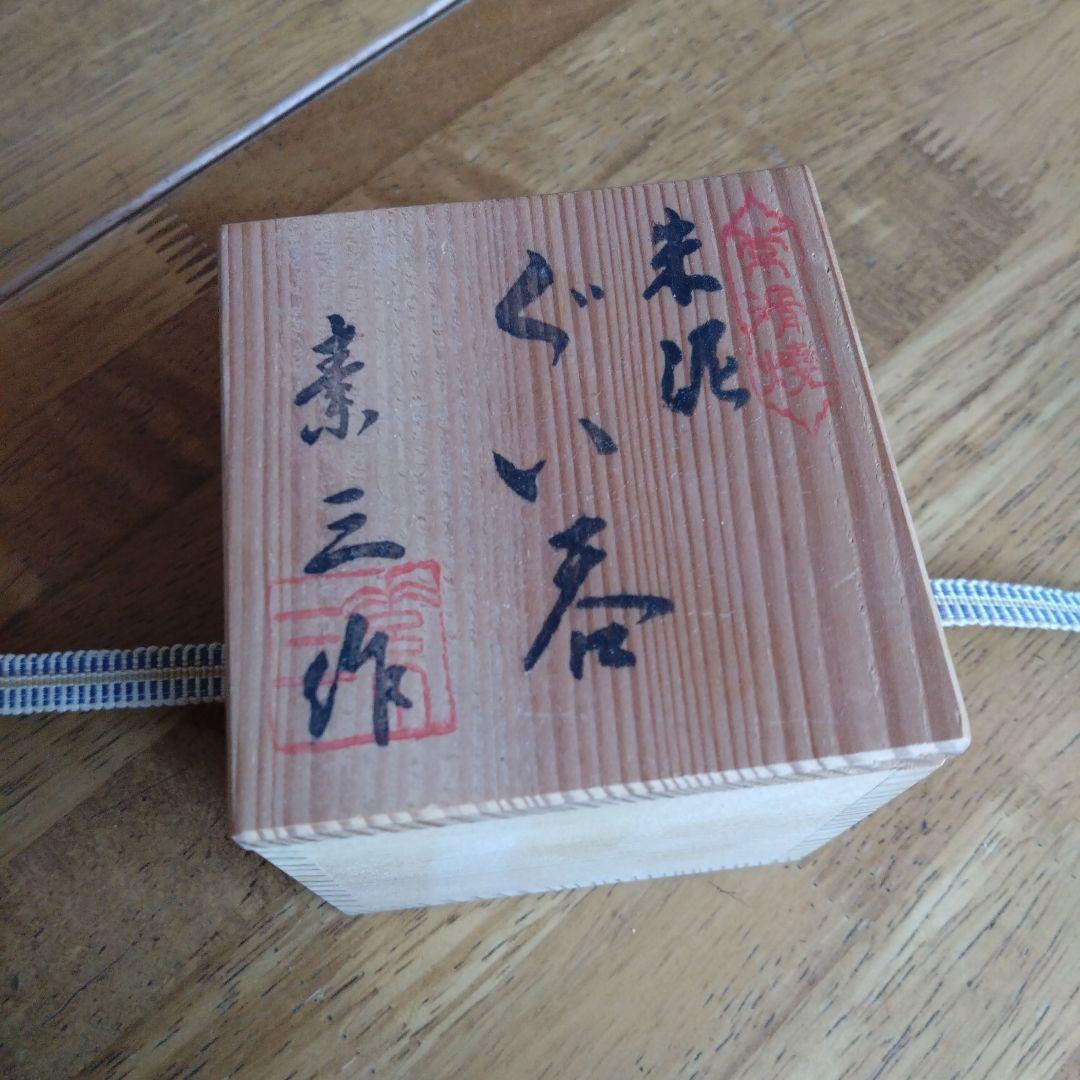 常滑焼
朱泥
ぐい呑
素三作